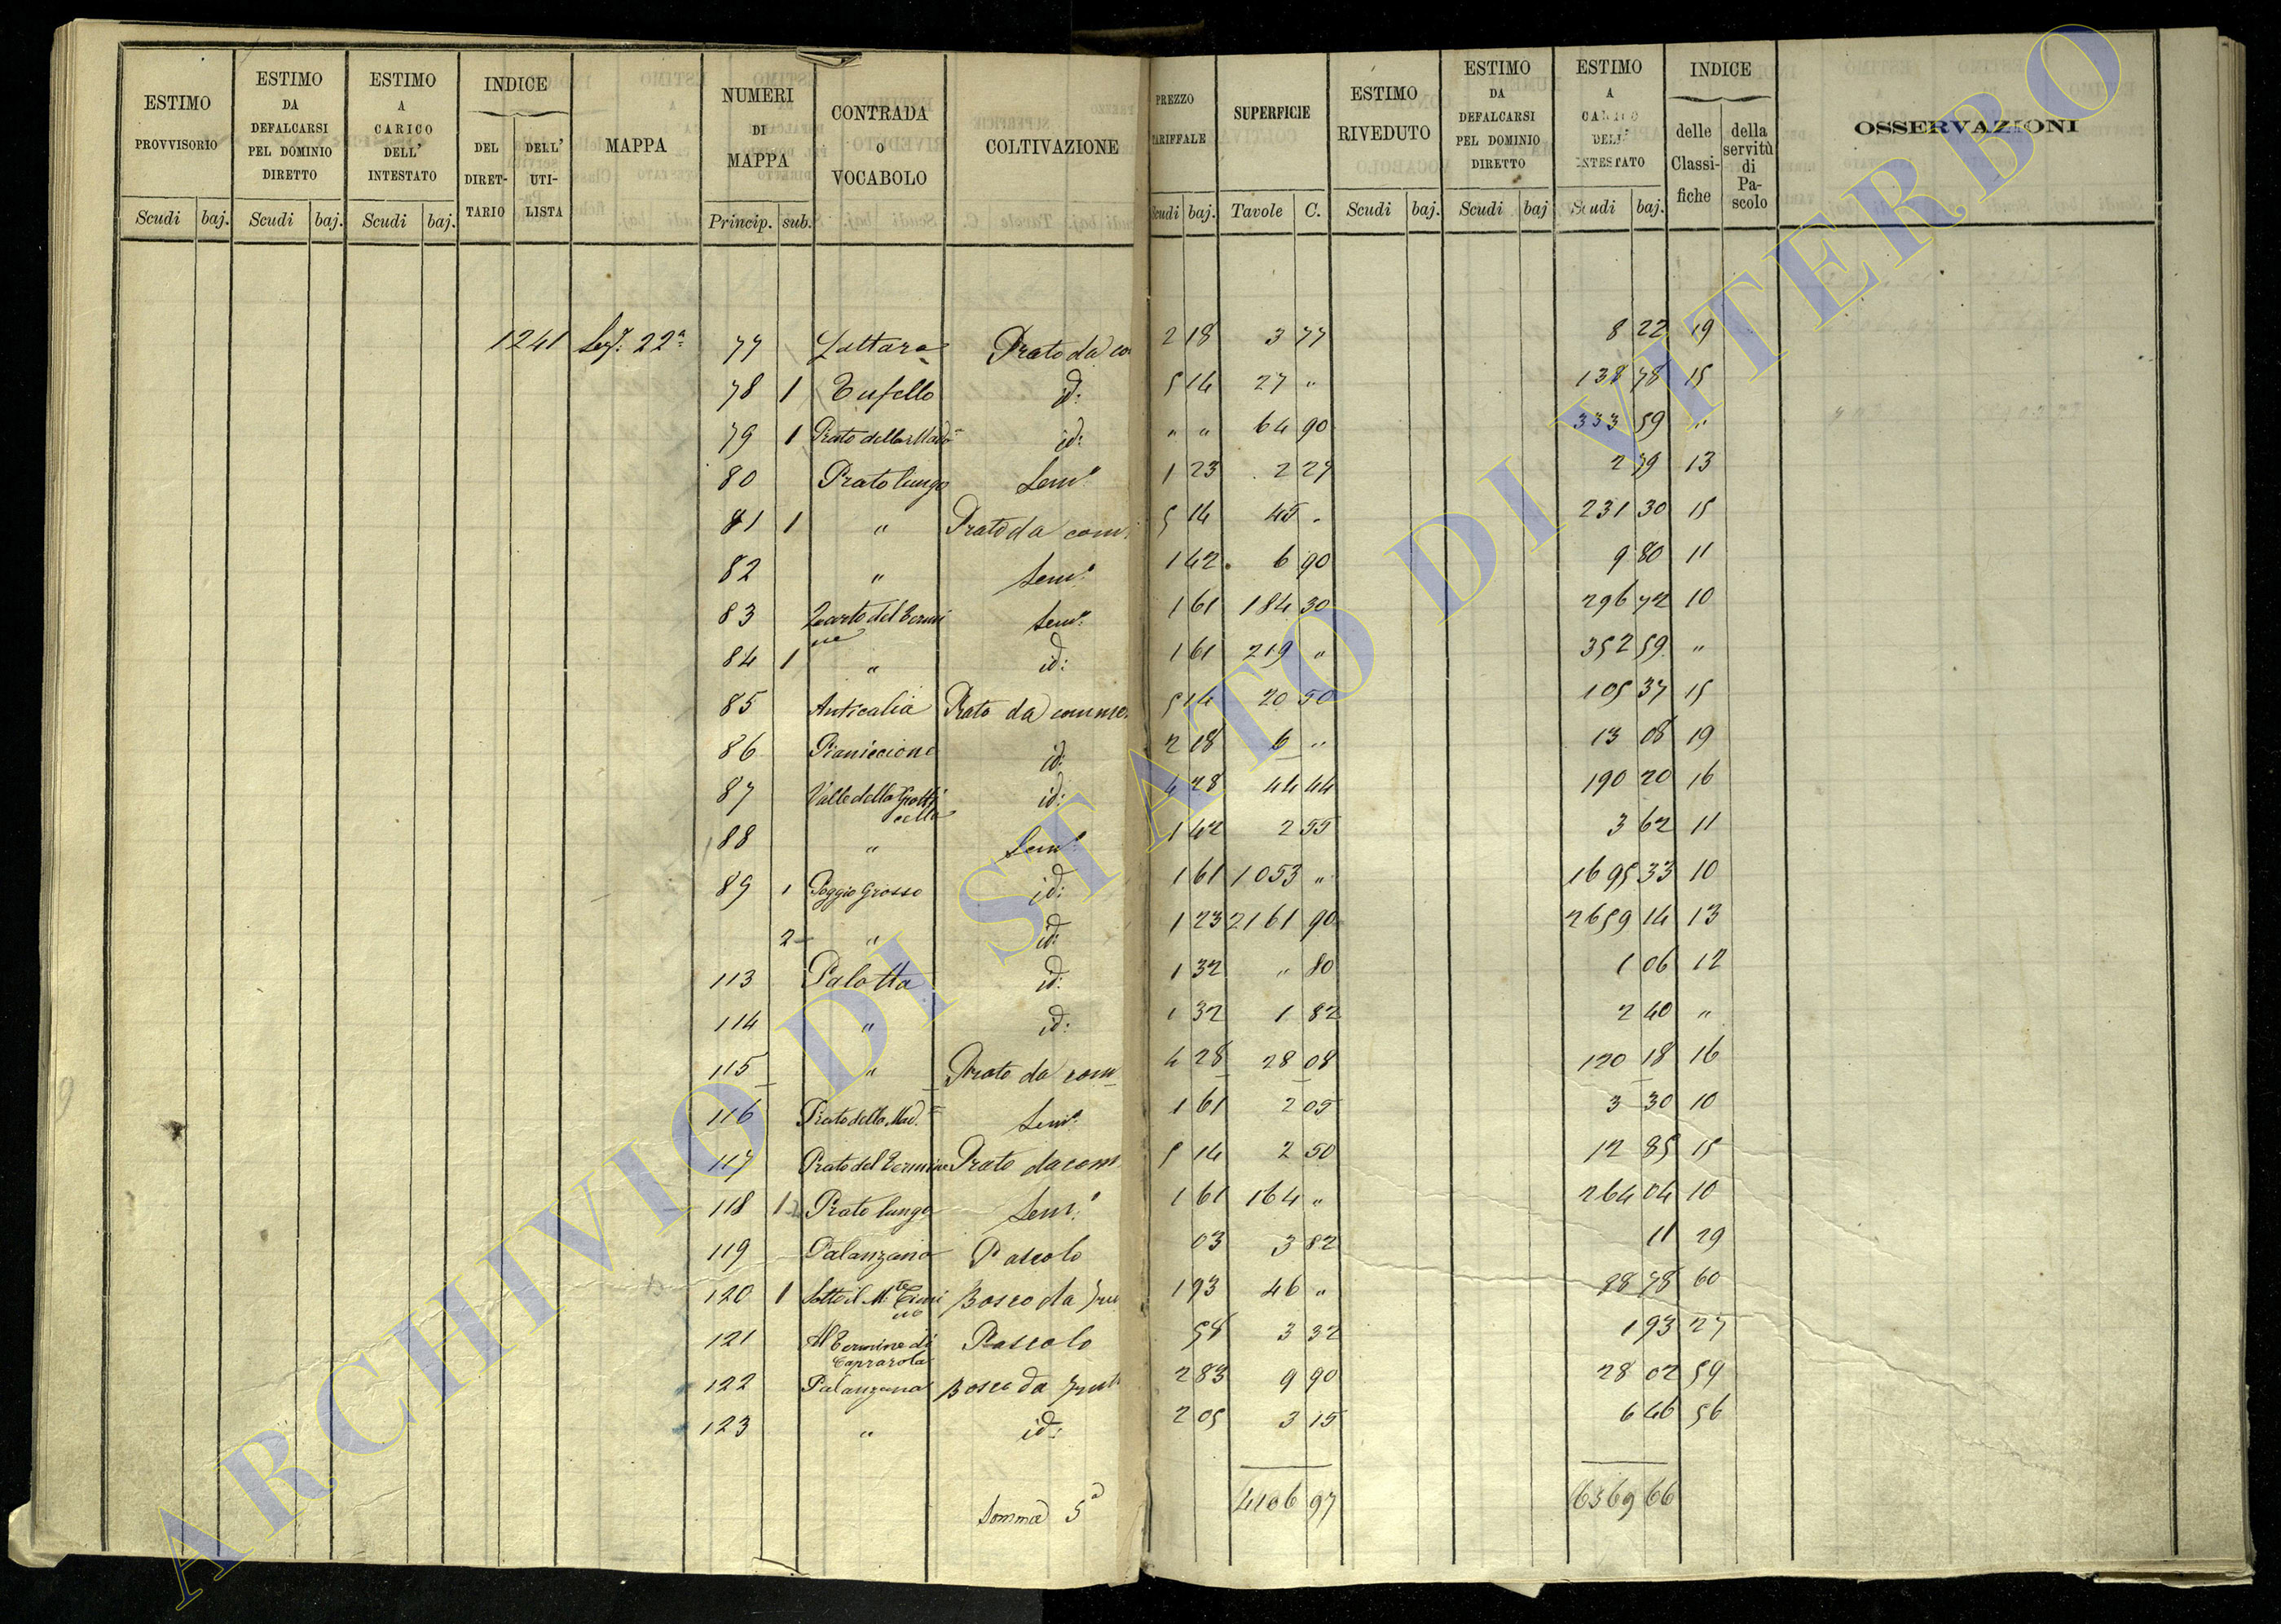 ESTIMO PROVVISORIO
ESTIMO DA DEFALCARSI PEL DOMINIO DIRETTO
ESTIMO A CARICO DELL' INTESTATO
INDICE
DEL DIRET-TARIO
DELL' UTI-LISTA
MAPPA
NUMERI DI MAPPA
CONTRADA O VOCABOLO
COLTIVAZIONE
PREZZO TARIFFALE
SUPERFICIE
ESTIMO RIVEDUTO
ESTIMO DA DEFALCARSI PEL DOMINIO DIRETTO
ESTIMO A CARICO DELL' INTESTATO
INDICE
delle Classi-fiche
della servitù di Pa-scolo
OSSERVAZIONI
Scudi baj. Scudi baj. Scudi baj. Princip. sub. Scudi baj. Tavole C. Scudi baj. Scudi baj Scudi baj.
1241 Sez. 22ª 77 Lattara Prato da co 2 18 3 77 8 22 19
78 1 Tufello id: 5 14 27 " 138 78 15
79 1 Prato della Mado id: " " 64 90 333 59 "
80 Prato lungo Semo 1 23 2 27 2 79 13
81 1 " Prato da com 5 14 45 " 231 30 15
82 " Semo 1 42 6 90 9 80 11
83 Quarto del Termine Semo 1 61 184 30 296 72 10
84 1 " id: 1 61 219 " 352 59 "
85 Anticalia Prato da comme 5 14 20 50 105 37 15
86 Pianiccione id: 2 18 6 " 13 08 19
87 Valle della Grotticella id: 4 28 44 44 190 20 16
88 " Semo 1 42 2 55 3 62 11
89 1 Poggio Grosso id: 1 61 1053 " 1695 33 10
2 " id: 1 23 2161 90 2659 14 13
113 Palotta id: 1 32 " 80 1 06 12
114 " id: 1 32 1 82 2 40 "
115 " Prato da com 4 28 28 08 120 18 16
116 Prato della Mad. Semo 1 61 2 05 3 30 10
117 Prato del Termine Prato da com 5 14 2 50 12 85 15
118 1 Prato lungo Semo 1 61 164 " 264 04 10
119 Palanzano Pascolo 03 3 82 11 29
120 1 Sotto il M.te Cimino Bosco da fru 1 93 46 " 88 78 60
121 Al Termine di Caprarola Pascolo 58 3 32 1 93 27
122 Palanzana Bosco da frutt 2 83 9 90 28 02 59
123 " id: 2 05 3 15 6 46 56
Somma 5a 4106 97 6569 66
ARCHIVIO DI STATO DI VITERBO